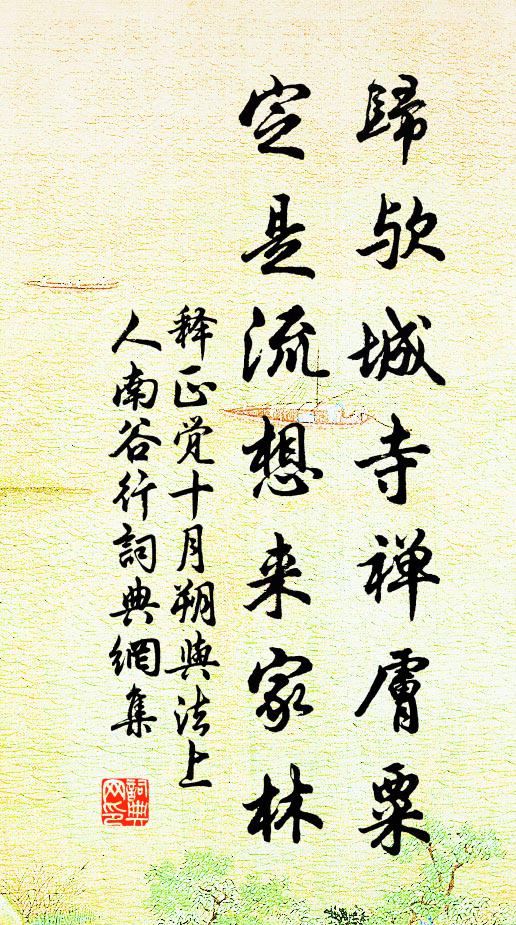 歸欤城寺禅膚粟
定是流想来家林
释正覚十月朔與法上
人南谷行詞典網集
詞典
网印